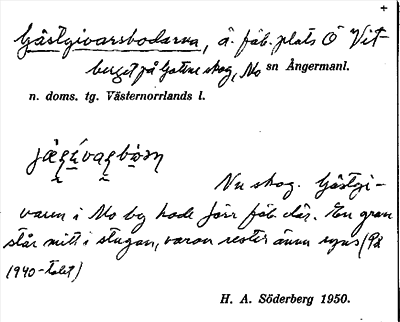 +
Gästgivarsbodarna, ä. fäb. plats Ö Vit-
berget på Gottne skog, Mo sn Ångermanl.
n. doms. tg. Västernorrlands l.
Nu skog. Gästgi-
varen i Mo by hade förr fäb. där. En gran
står mitt i stugan, varav rester ännu syns (På
1940-talet)
H. A. Söderberg 1950.